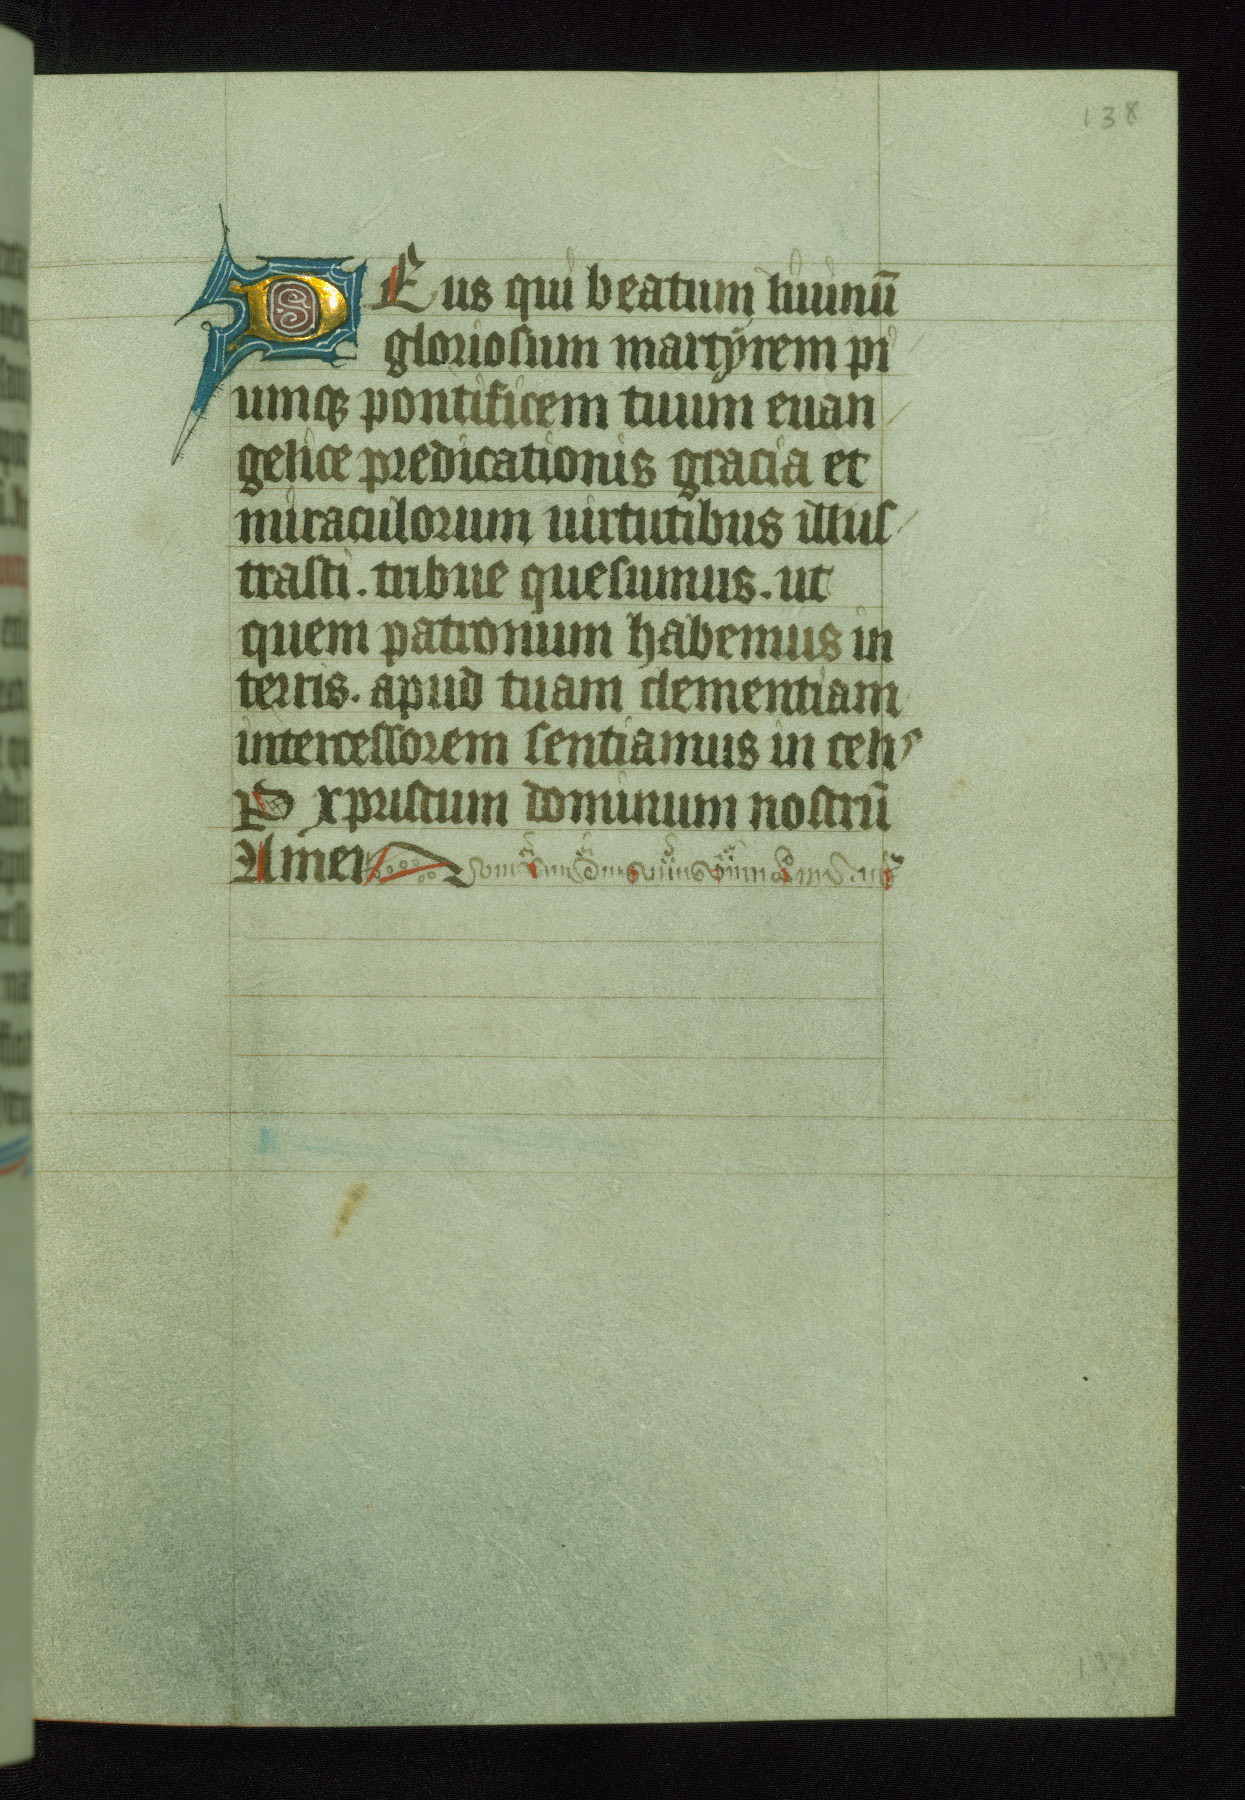 138
DEus qui beatum liuinū
gloriosum martyrem pi
umqꝫ pontificem tuum euan
gelice predicationis gracia et
miraculorum uirtutibus illus
trasti. tribue quesumus. ut
quem patronum habemus in
terris. apud tuam clementiam
intercessorem sentiamus in celis
P xpristum dominum nostrū
Amen